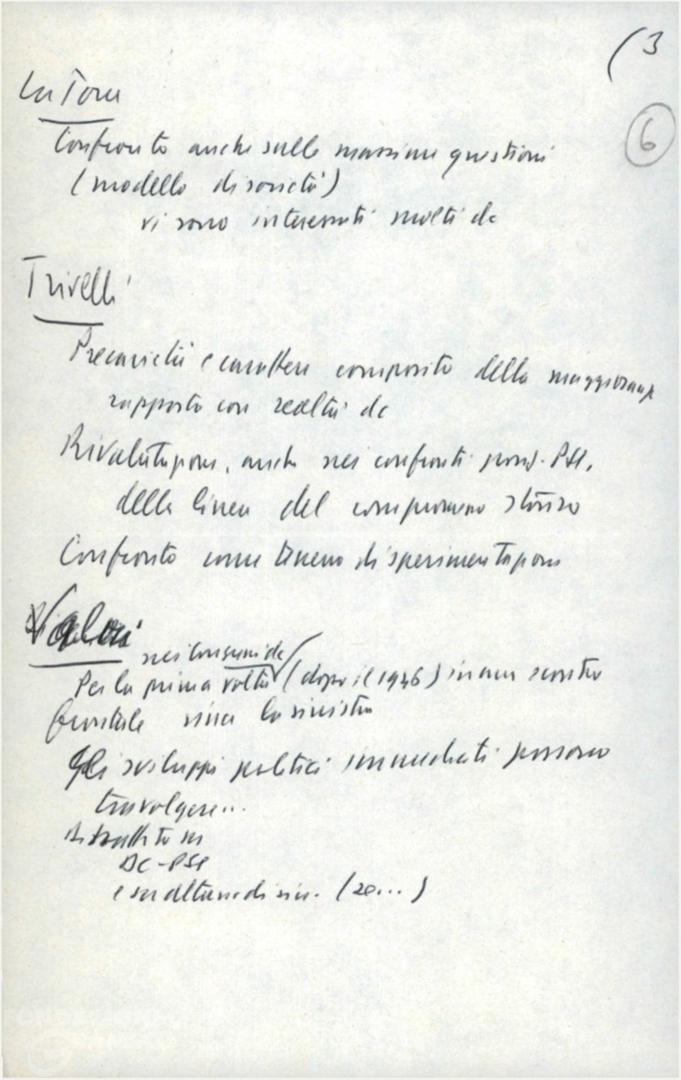 (3
6
La Torre
Confronto anche sulle massime questioni
(modello di società)
vi sono interessati molti dc
Trivelli
Precarietà e carattere composito della maggioranza
rapporto con realtà dc
Rivalutazione, anche nei confronti PSI,
della linea del compromesso storico
Confronto come terreno di sperimentazione
Valori
nei
Per la prima volta (dopo il 1946) in uno scontro
frontale vince la sinistra
Gli sviluppi politici immediati possono
travolgere...
Dibattito in
DC-PSI
e